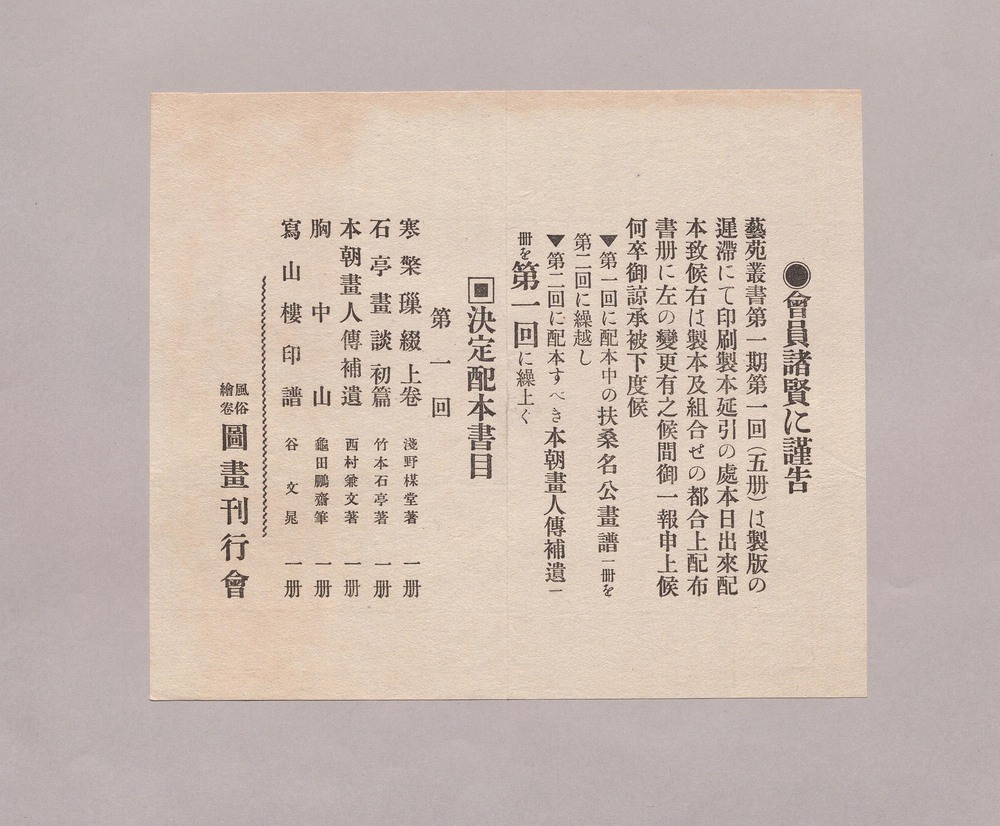 ●會員諸賢に謹告
藝苑叢書第一期第一回(五册)は製版の
遲滯にて印刷製本延引の處本日出來配
本致候右は製本及組合せの都合上配布
書册に左の變更有之候間御一報申上候
何卒御諒承被下度候
▼第一回に配本中の扶桑名公畫譜一冊を
第二回に繰越し
▼第二回に配本すべき本朝畫人傳補遺一
冊を第一回に繰上ぐ
▣決定配本書目
第一回
寒檠璅綴上卷 淺野楳堂著 一册
石亭畫談初篇 竹本石亭著 一册
本朝畫人傳補遺 西村兼文著 一册
胸中山 龜田鵬齋筆 一册
寫山樓印譜 谷文晁 一册
風俗繪卷圖畫刊行會